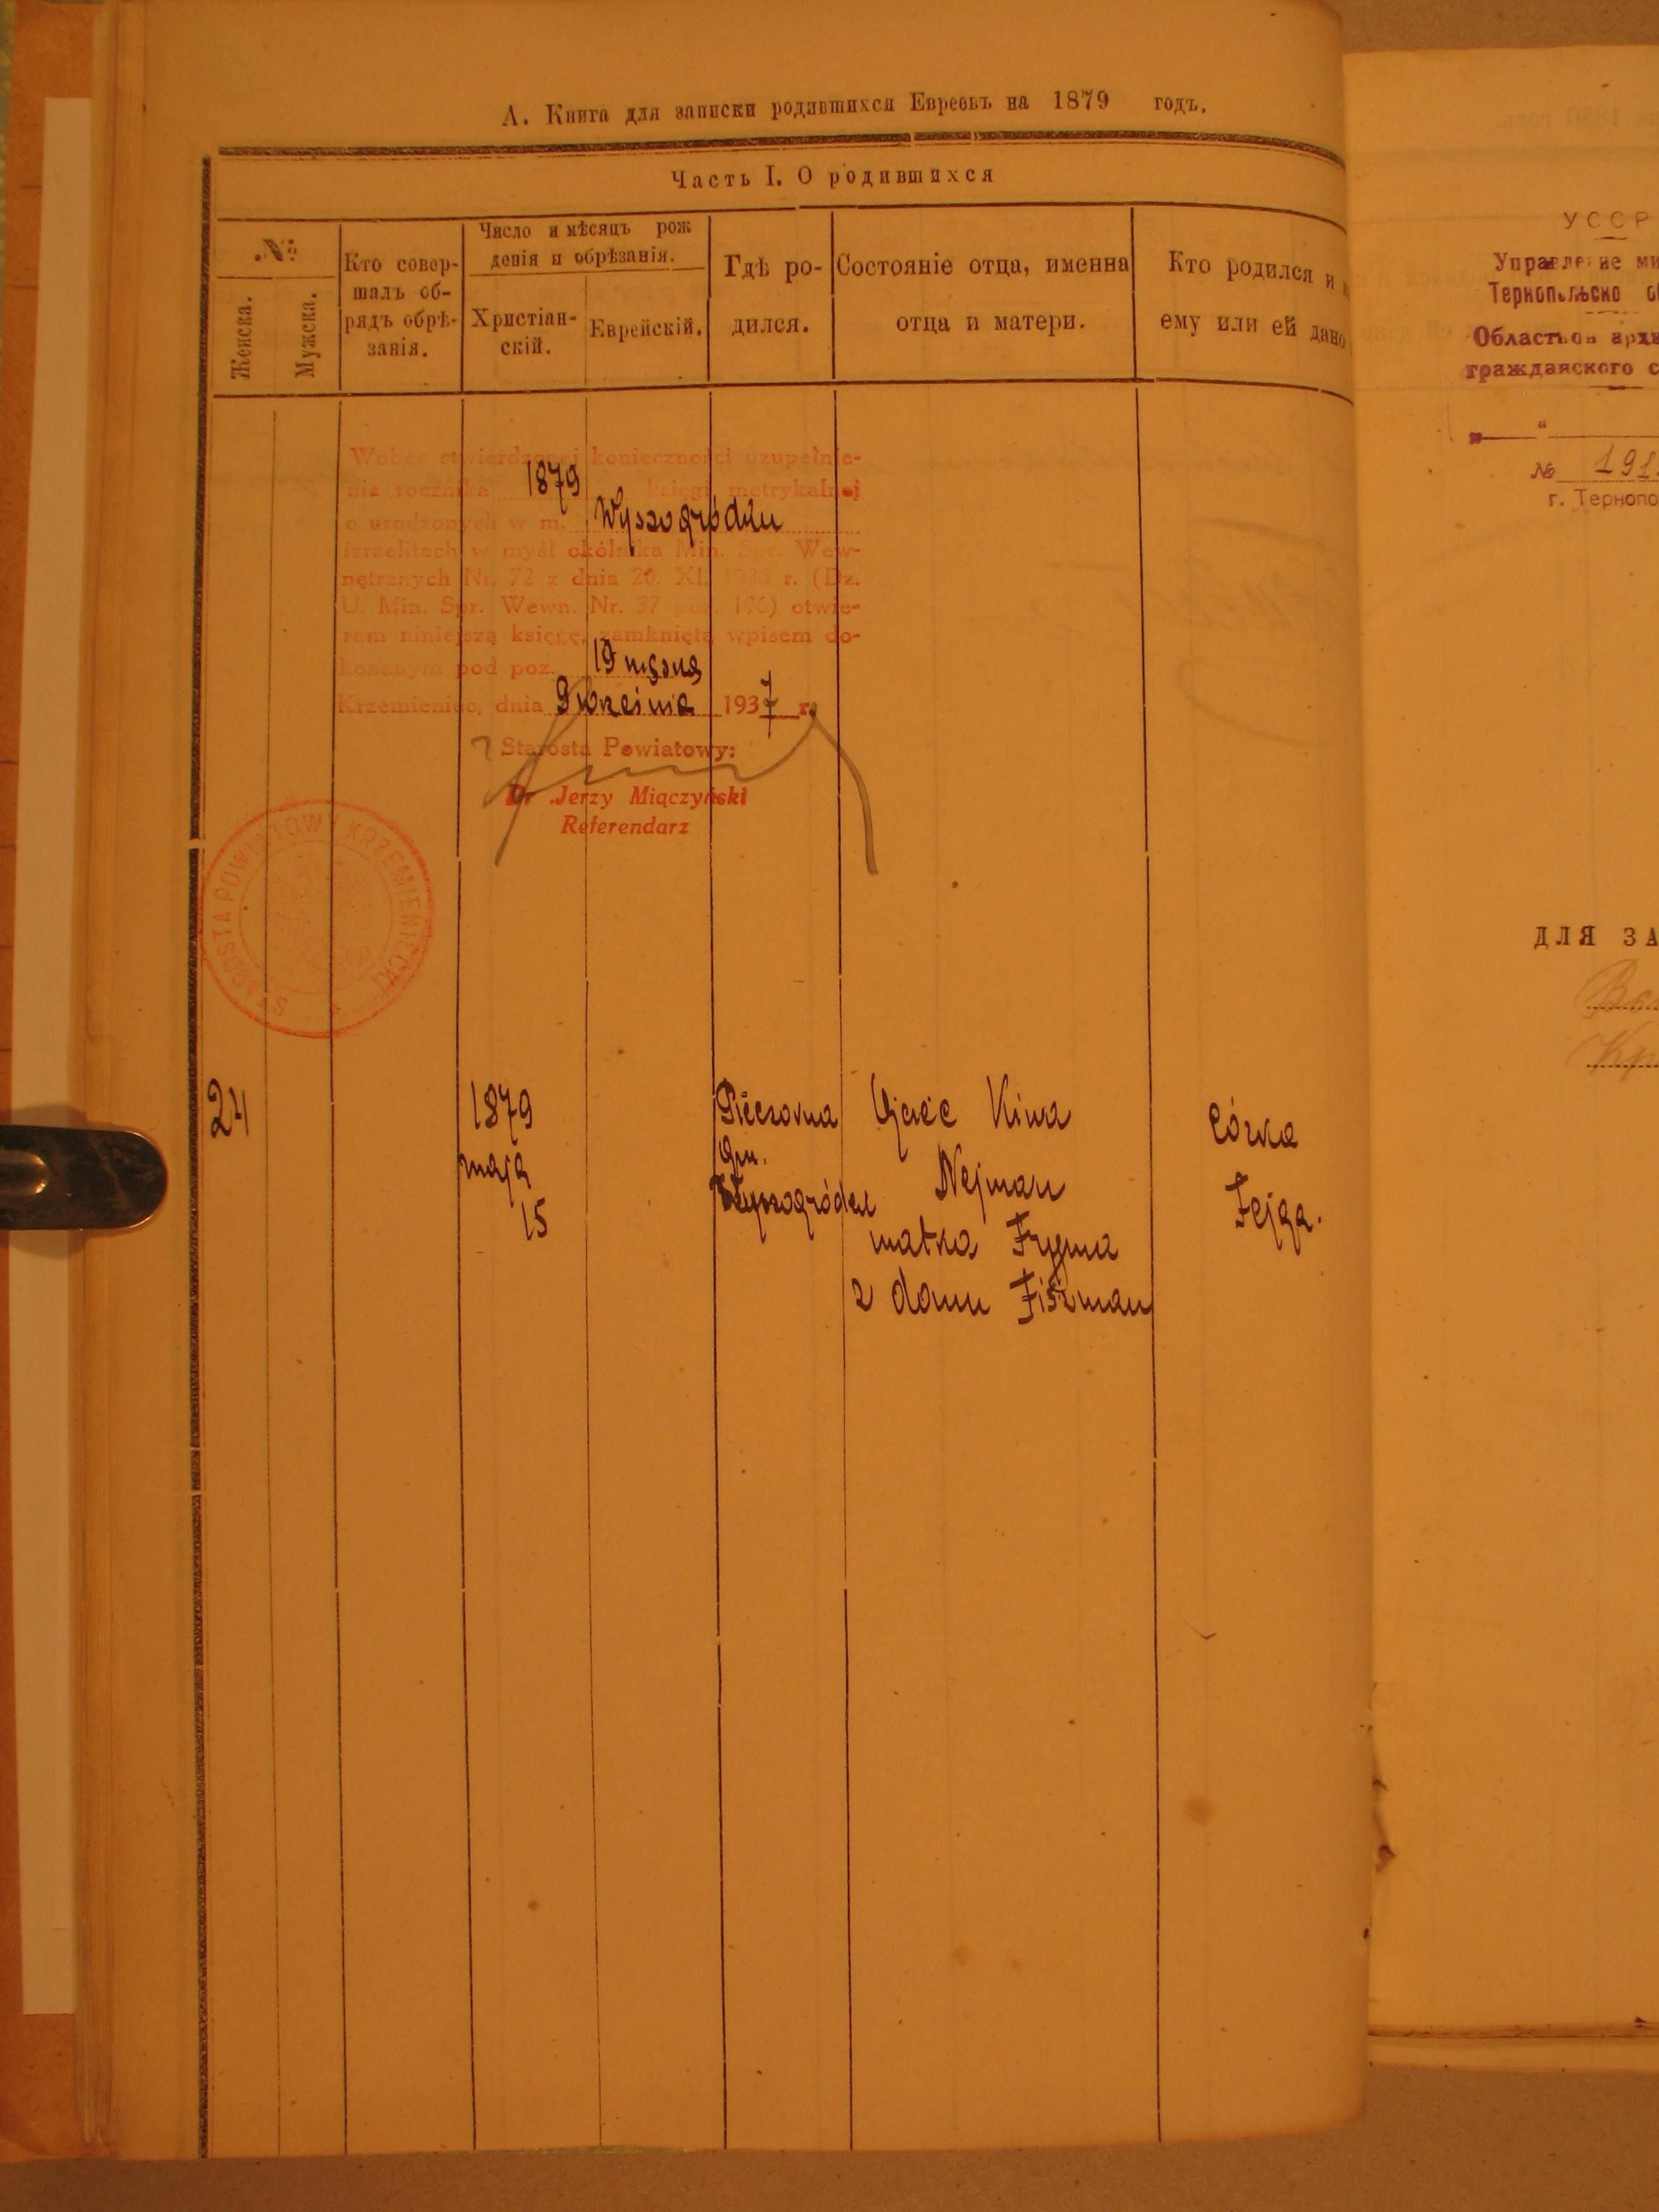 А. Книга для записки родившихся Евреевъ на 1879 годъ.
Часть I. О родившихся
№
Женска.
Мужска.
Кто совер-
шалъ об-
рядъ обрѣ-
занія.
Число и мѣсяцъ рож
денія и обрѣзанія.
Христіан-
скій.
Еврейскій.
Гдѣ ро-
дился.
Состояніе отца, именна
отца и матери.
Кто родился и
ему или ей дано
Wobec stwierdzonej konieczności uzupełnie-
nia rocznika 1879 księgi metrykalnej
o urodzonych w m. Wyszogródku
izraelitach w myśl okólnika Min. Spr. Wew-
nętrznych Nr. 72 z dnia 20. XI. 1936 r. (Dz.
U. Min. Spr. Wewn. Nr. 37 poz. 196) otwie-
ram niniejszą księgę, zamkniętą wpisem do-
konanym pod poz. 19 męską
Krzemieniec, dnia 9 września 1937 r.
Starosta Powiatowy:
Dr Jerzy Miączyński
Referendarz
STAROSTA POWIATOWY KRZEMIENIECKI
24
1879
maja
15
gm.
Wyszogródek
Ojciec Kiwa
Nejman
matka Fryma
z domu Fiszman
Córka
Fejga.
УССР
Управление
Тернопольско
Областной
гражданского
"
№ 191
г. Терноп
ДЛЯ ЗА